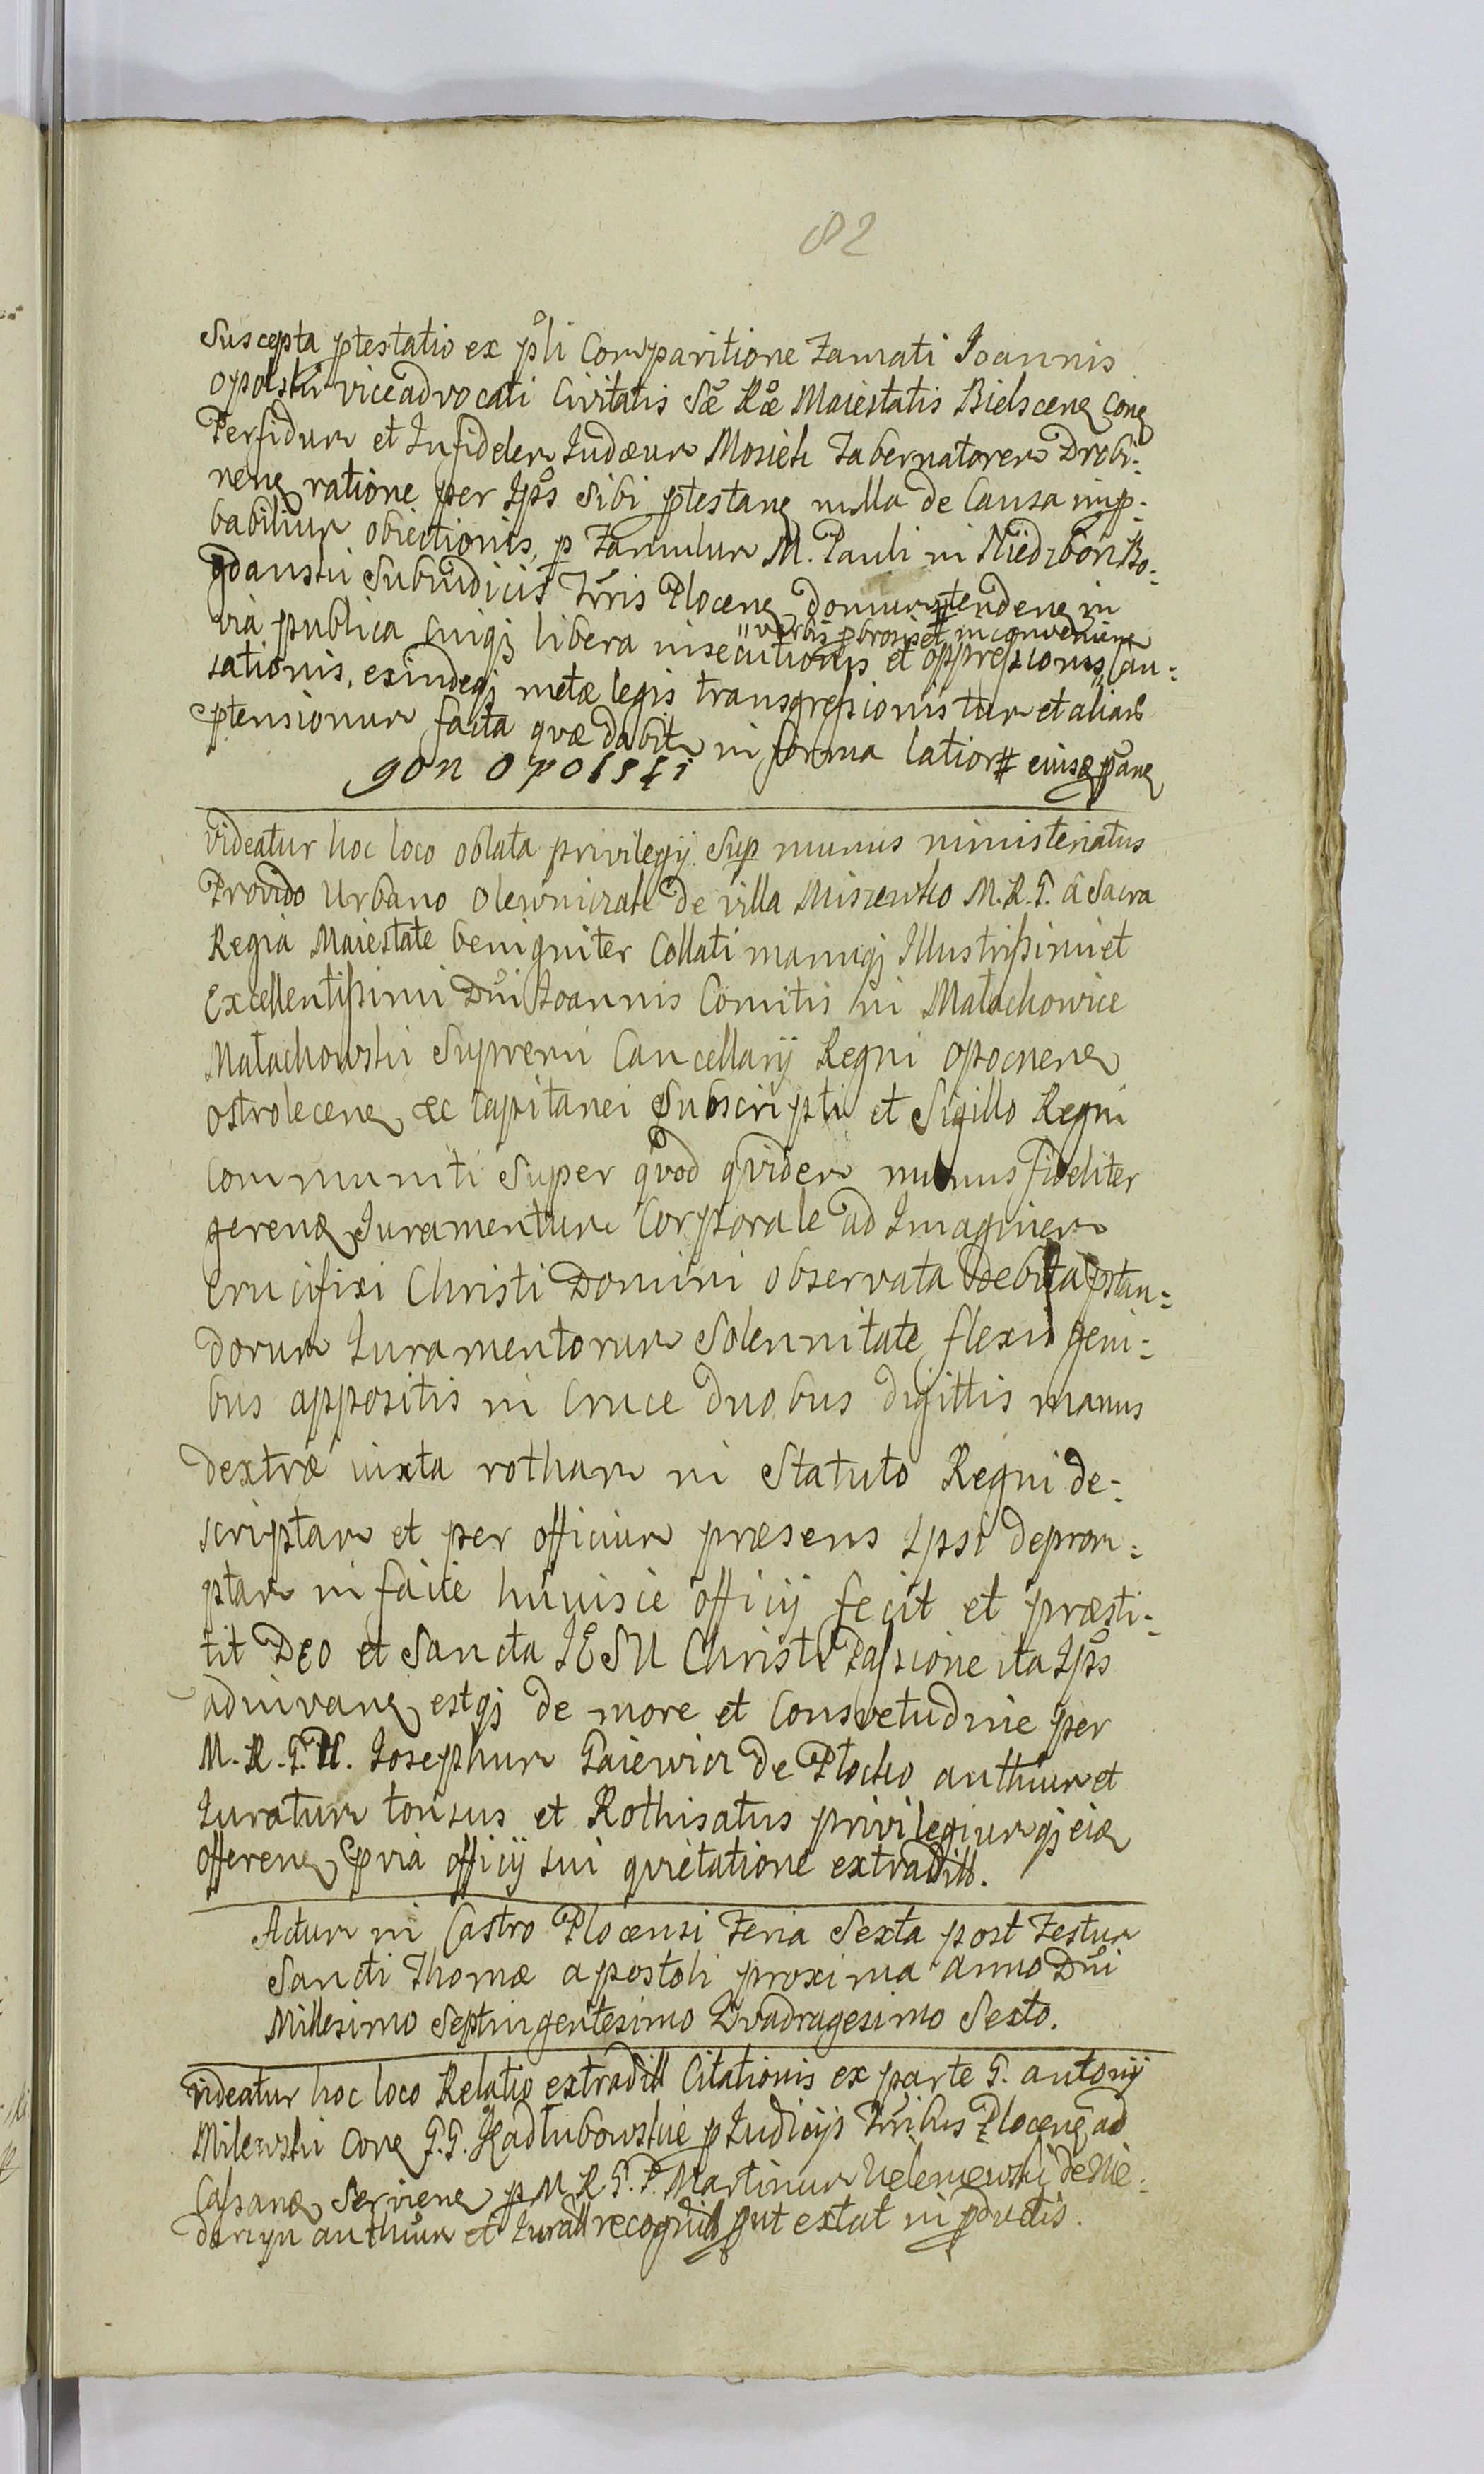 82
Suscepta ptestatio ex pśli Comparitione Famati Ioannis
Opolski viceadvocati Civitatis Sæ Ræ Maiestatis Bielscen Con
Perfidum et Infidelem Iudæum Mosiek Tabernatorem Drobi-
nen ratione per Ips Sibi ptestan nulla de Causa imp-
babilium obiectionis, p Famulum M. Pauli in Niedzbórz Bo-
gdanski Subiudicis Trris Plocen domum tenden in
via publica Cuiqj libera insecutionis et oppressionis, Cau-
" verbis pbrosis et inconvenien
sationis, exindeqj metæ legis transgressionis tum et aliar
ptensionum facta qvæ dabit in forma latiori # eiusq pan
Jon Opolski
Videatur hoc loco oblata privilegij Sup munus ministeriatus
Provido Urbano Olewniczak de villa Miszewko M.R.G. â Sacra
Regia Maiestate benigniter Collati manuqj Illustrissimi et
Excellentissimi Dni Ioannis Comitis in Małachowice
Małachowski Supremi Cancellarij Regni Opocnen
Ostrolecen &c Capitanei Subscripti et Sigillo Regni
communiti Super qvod qvidem munus fideliter
geren Iuramentum Corporale ad Imaginem
Crucifixi Christi Domini observata debita pstan-
dorum Iuramentorum Solennitate flexis geni-
bus appositis in Cruce duobus digittis manus
dextræ iuxta rotham in Statuto Regni de-
scriptam et per officium præsens Ipsi deprom-
ptam in facie huiusce officij fecit et præsti-
tit Deo et Sancta IESU Christi Passione ita Ips
adiuvan estqj de more et Consvetudine per
M.R.G.M. Iosephum Gaiewicz de Płocko authum et
Iuratum tonsus et Rothisatus privilegiumqj eid
offeren pvia officij sui qvietatione extradit.
Actum in Castro Plocensi Feria Sexta post Festum
Sancti Thomæ apostoli proxima Anno Dni
Millesimo Septingentesimo Qvadragesimo Sexto.
Videatur hoc loco Relatio extradit Citationis ex parte G. Antonij
Milewski Con G.G. Kadłubowskie p Iudicijs Trribus Plocen ad
Cassand Servien p M.R.G.P. Martinum de Nie-
darzyn authum et Iurat recognit put extat in pductis.